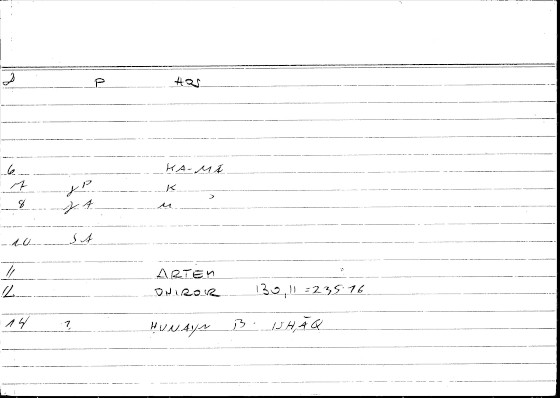 2 P HQS
6 KA-MA
7 γP K
8 γA M
10 SA
11 ARTEM
12 ONIROKR 130,11 = 235.16
14 ? HUNAYN B. ISḤĀQ